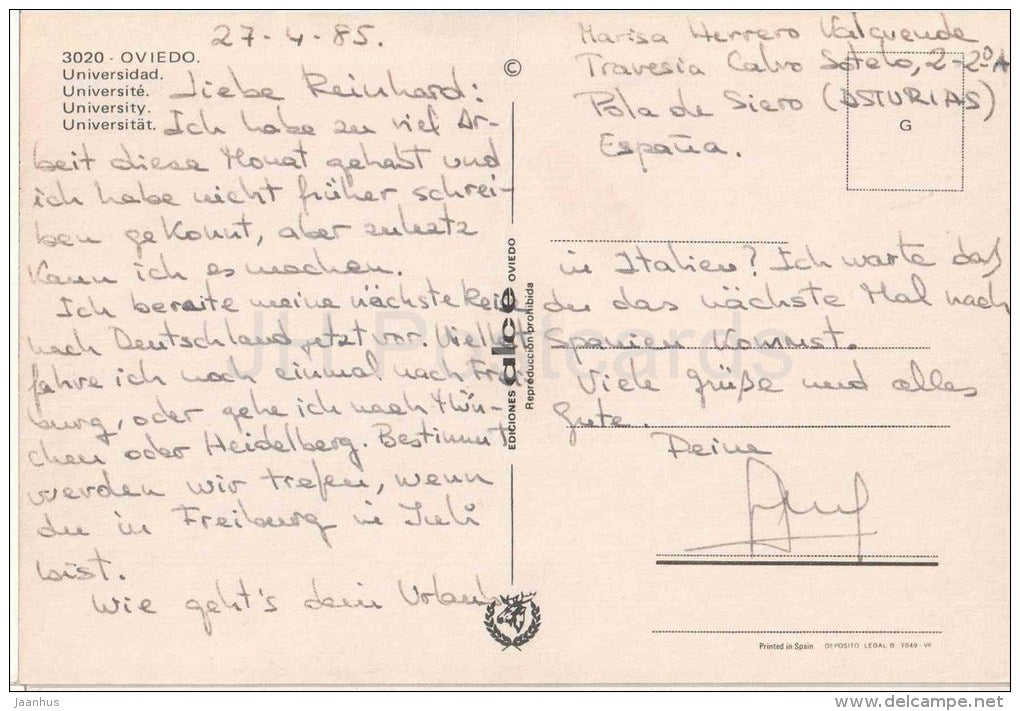 27-4-85.
3020 - OVIEDO.
Universidad.
Université.
University.
Universität.
Liebe Reinhard:
Ich habe zu viel Ar-
beit diese Monat gehabt und
ich habe nicht früher schrei-
ben gekonnt, aber zuletz
kann ich es machen.
Ich bereite meine nächste Reise
nach Deutschland jetzt vor. Vielleit
fahre ich noch einmal nach Frei-
burg, oder gehe ich nach Mün-
chen oder Heidelberg. Bestimmt
werden wir trefen, wenn
du in Freiburg in Juli
bist.
Wie geht's dein Urlaub
©
EDICIONES alce OVIEDO
Reproducción prohibida
Marisa Herrero Valverde
Travesia Calvo Sotelo, 2-2ºA
Pola de Siero (ASTURIAS)
España.
G
in Italien? Ich warte daß
du das nächste Mal nach
Spanien kommst.
Viele Grüße und alles
Gute.
Deine
Printed in Spain DEPOSITO LEGAL B. 7049 - VII
JH Postcards
jaanhus
www.delcampe.net